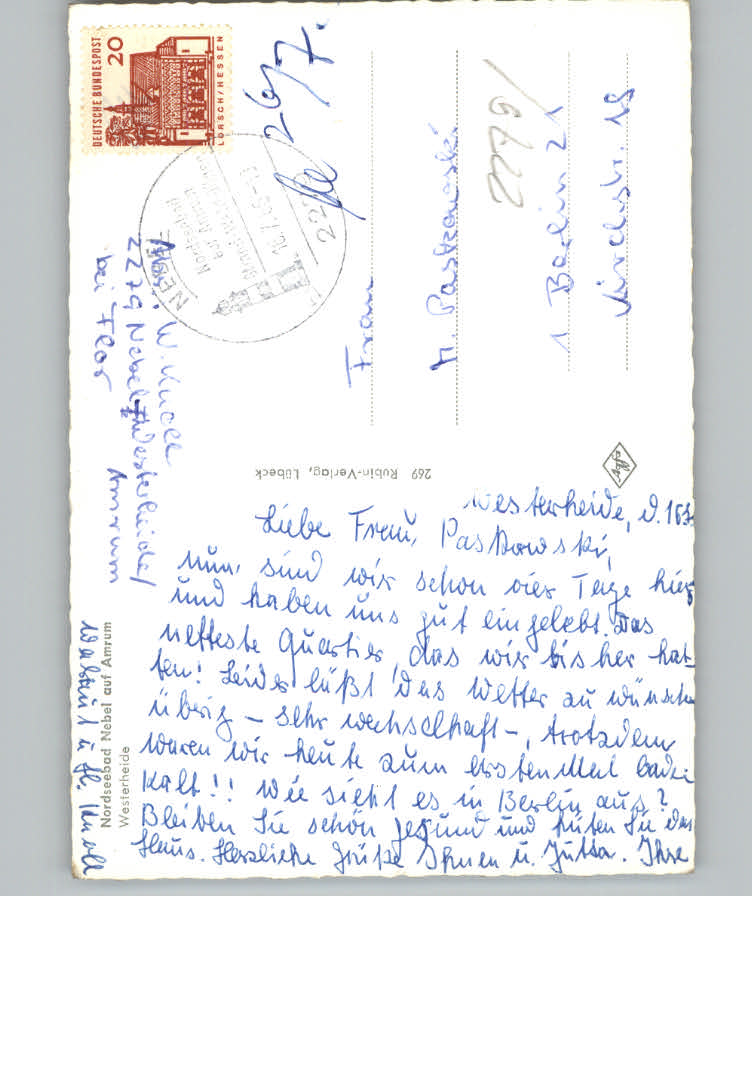 Westerheide, d. 16.7.
Liebe Frau Paskowski,
nun sind wir schon vier Tage hier
und haben uns gut eingelebt. Das
netteste Quartier, das wir bisher hat-
ten! Leider läßt das Wetter zu wünschen
übrig – sehr wechselhaft –, trotzdem
waren wir heute zum ersten Mal baden
kalt!! Wie sieht es in Berlin aus?
Bleiben Sie schön gesund und hüten Sie das
Haus. Herzliche Grüße Ihnen u. Jutta. Ihre
Waltraut u. H. Knoll
Nordseebad Nebel auf Amrum
Westerheide
W. Knoll
2279 Nebel-Westerheide/
bei Flor
Amrum
DEUTSCHE BUNDESPOST
20
LORSCH/HESSEN
NEBEL
Nordseebad
auf Amrum
26/7.
2279/
Frau
H. Paskowski
1 Berlin 21
269 Rubin-Verlag, Lübeck